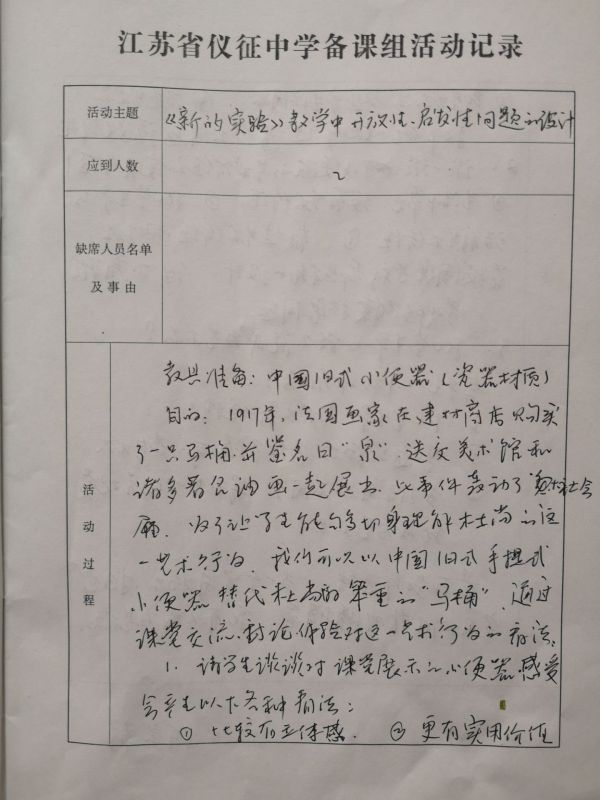 江苏省仪征中学备课组活动记录
活动主题
《新的实验》教学中开放性、启发性问题的设计
应到人数
2
缺席人员名单
及事由
活动过程
教具准备：中国旧式小便器（瓷器材质）
目的：1917年，法国画家在建材商店购买
了一只马桶，并签名曰“泉”，送交美术馆和
诸多著名油画一起展出，此事件轰动了社会
为了让学生能够切身理解杜尚的这
一艺术行为，我们可以以中国旧式手提式
小便器替代杜尚的笨重的“马桶”，通过
课堂交流、讨论、体验对这一艺术行为的看法。
1. 请学生谈谈对课堂展示的小便器感受
会产生以下各种看法：
① 比较有立体感. ② 更有实用价值